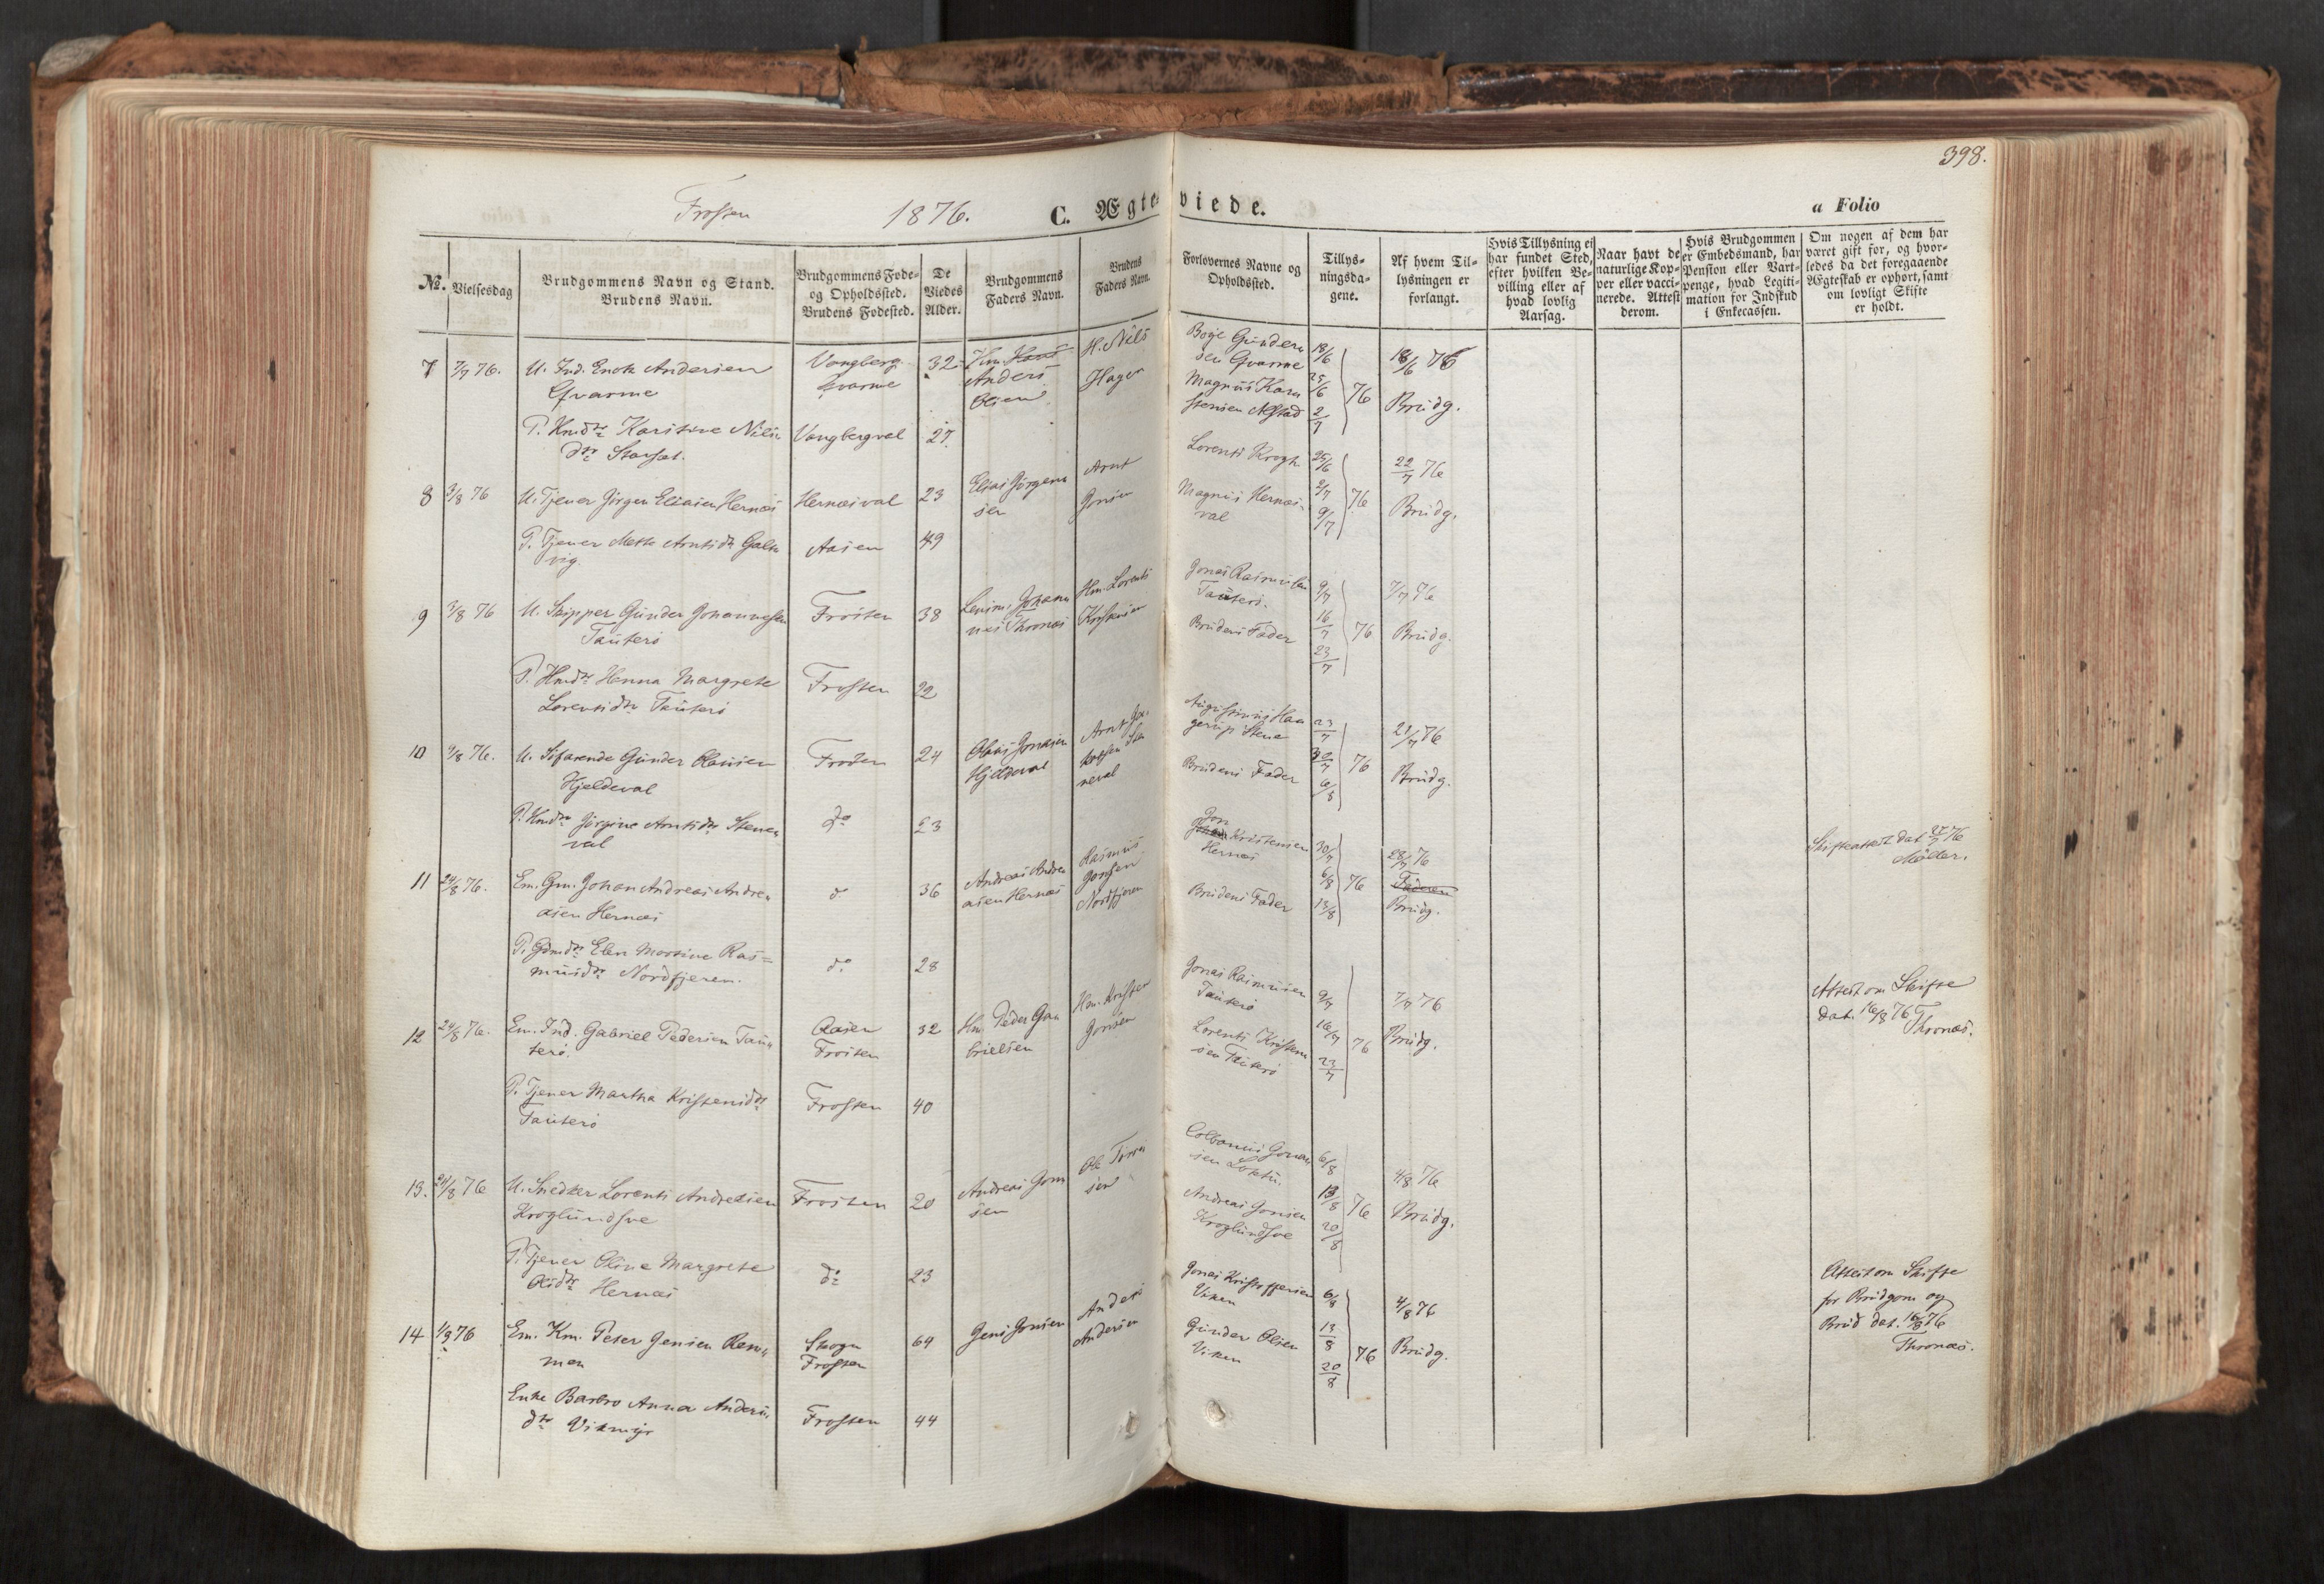 398.
Frosten 1876. C. Ægteviede. a Folio
No. Vielsesdag
Brudgommens Navn og Stand.
Brudens Navn.
Brudgommens Føde-
og Opholdssted.
Brudens Fødested.
De
Viedes
Alder.
Brudgommens
Faders Navn.
Brudens
Faders Navn.
Forlovernes Navne og
Opholdssted.
Tillys-
ningsda-
gene.
Af hvem Til-
lysningen er
forlangt.
Hvis Tillysning ei
har fundet Sted,
efter hvilken Be-
villing eller af
hvad lovlig
Aarsag.
Naar havt de
naturlige Kop-
per eller vacci-
nerede. Attest
derom.
Hvis Brudgommen
er Embedsmand, har
Pension eller Vart-
penge, hvad Legiti-
mation for Indskud
i Enkecassen.
Om nogen af dem har
været gift før, og hvor-
ledes da det foregaaende
Ægteskab er ophørt, samt
om lovligt Skifte
er holdt.
7 7/7 76. U. Ind. Enok Andersen
Gvarme
Vangberg
Kvarme
32
Anders
Olsen
H. Nils
Hagen
Boye Gunder
sen Gvarme
Magnus Kar
stensen
18/6
25/6
2/7
76
18/6 76
Brudg.
P. Hmdtr Karistine Nils
dtr
Vangbergval 27.
8 3/8 76 U. Tjener Jørgen Eliasen Hernæs
Hernæsval 23
Elias Jørgen
sen
Arnt
Jonsen
Lorents Krogh
Magnus Hernæs-
val
25/6
2/7
9/7
76
22/7 76
Brudg.
P. Tjener Mette Arntsdtr Galt
vig.
Aasen 49
9 3/8 76 U. Skipper Gunder Johannesen
Tauterø
Frosten 38
Johan
nes Thronæs
Hm. Lorents
Kristensen
Jonas Rasmussen
Tauterø.
Brudens Fader
9/7
16/7
23/7
76
7/7 76
Brudg.
P. Hmdtr Hanna Margrete
Lorentsdtr Tauterø
Frosten 22
10 /8 76. U. Søfarende Gunder Olausen
Hjeldeval
Frosten 24
Olaus Jonasen
Hjeldeval
Arnt Ja-
kobsen Ste
neval
Augustinus Haa
gerup Stene
Brudens Fader
23/7
30/7
6/8
76
21/7 76
Brudg.
P. Hmdtr Jørgine Arntsdtr Stene
val
do 23
11 24/8 76. Em. Gm. Johan Andreas Andre
asen Hernæs
do 36
Andreas Andre
asen Hernæs
Rasmus
Jonsen
Nordfjæren
Jon
Kristensen
Hernæs
Brudens Fader
30/7
6/8
13/8
76
28/7 76
Faderen
Brudg.
Skifteattest dat. 27/7 76
Møller.
P. Gdmdtr Elen Martine Ras=
musdtr Nordfjæren.
do 28
12 24/8 76. Em. Ind. Gabriel Pedersen Tau
terø.
Aasen
Frosten
32
Hm. Peder Ga
brielsen
Hm. Kristen
Jonsen
Jonas Rasmussen
Tauterø
Lorents Kristen
sen Tauterø
9/7
16/7
23/7
76
7/7 76
Brudg.
Attest om Skifte
dat. 16/8 76
Thronæs.
P. Tjener Martha Kristensdtr
Tauterø
Frosten 40
13. 24/8 76 U. Snedker Lorents Andreasen
Kroglundsve
Frosten 20
Andreas Jon
sen
Ole Tørris
sen
Colbanus Jonas
sen Løktu.
Andreas Jonsen
Kroglundsve
6/8
13/8
20/8
76
4/8 76
Brudg.
P. Tjener Oline Margrete
Olsdtr Hernæs
do 23
14 1/9 76 Em. Km. Peter Jensen Rem
men
Skogn
Frosten
64
Jens Jonsen
Anders
Andersen
Jonas Kristoffersen
Viken
Gunder Olsen
Viken
6/8
13/8
20/8
76
4/8 76
Brudg.
Attest om Skifte
for Brudgom og
Brud dat. 16/8 76
Thronæs.
Enke Barbro Anna Anders
dtr Vikmyr
Frosten 44